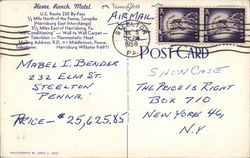 Home Ranch Motel
U.S. Route 230 By-Pass
½ Mile North of the Penna. Turnpike
(Harrisburg East Interchange)
2½ Miles East of Harrisburg, Pa.
Air Conditioning — Wall to Wall Carpet
Television — Thermostatic Heat.
Mailing Address R.D. #1 Middletown, Penna.
Telephone: Harrisburg
AIR MAIL
STEELTON
1958
PA.
POST CARD
MABEL I. BENDER
232 ELM ST.
STEELTON
PENNA.
PRICE - $25,625.85
SHOWCASE
THE PRICE IS RIGHT
BOX 710
NEW YORK 46,
N.Y